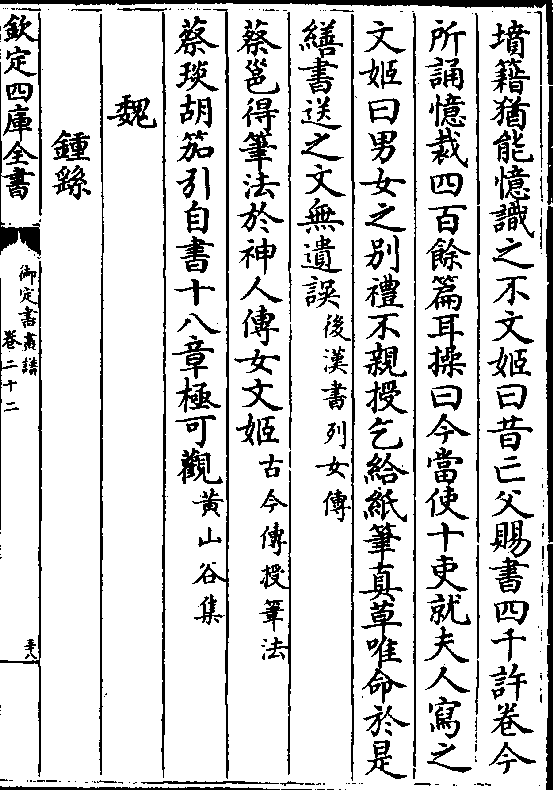 墳籍猶能憶識之不文姬曰昔亡父賜書四千許卷今
所誦憶裁四百餘篇耳操曰今當使十吏就夫人寫之
文姬曰男女之別禮不親授乞給紙筆真草唯命於是
繕書送之文無遺誤後漢書列女傳
蔡邕得筆法於神人傳女文姬古今傳授筆法
蔡琰胡笳引自書十八章極可觀黃山谷集
魏
鍾繇
欽定四庫全書
御定書畫譜
卷二十二